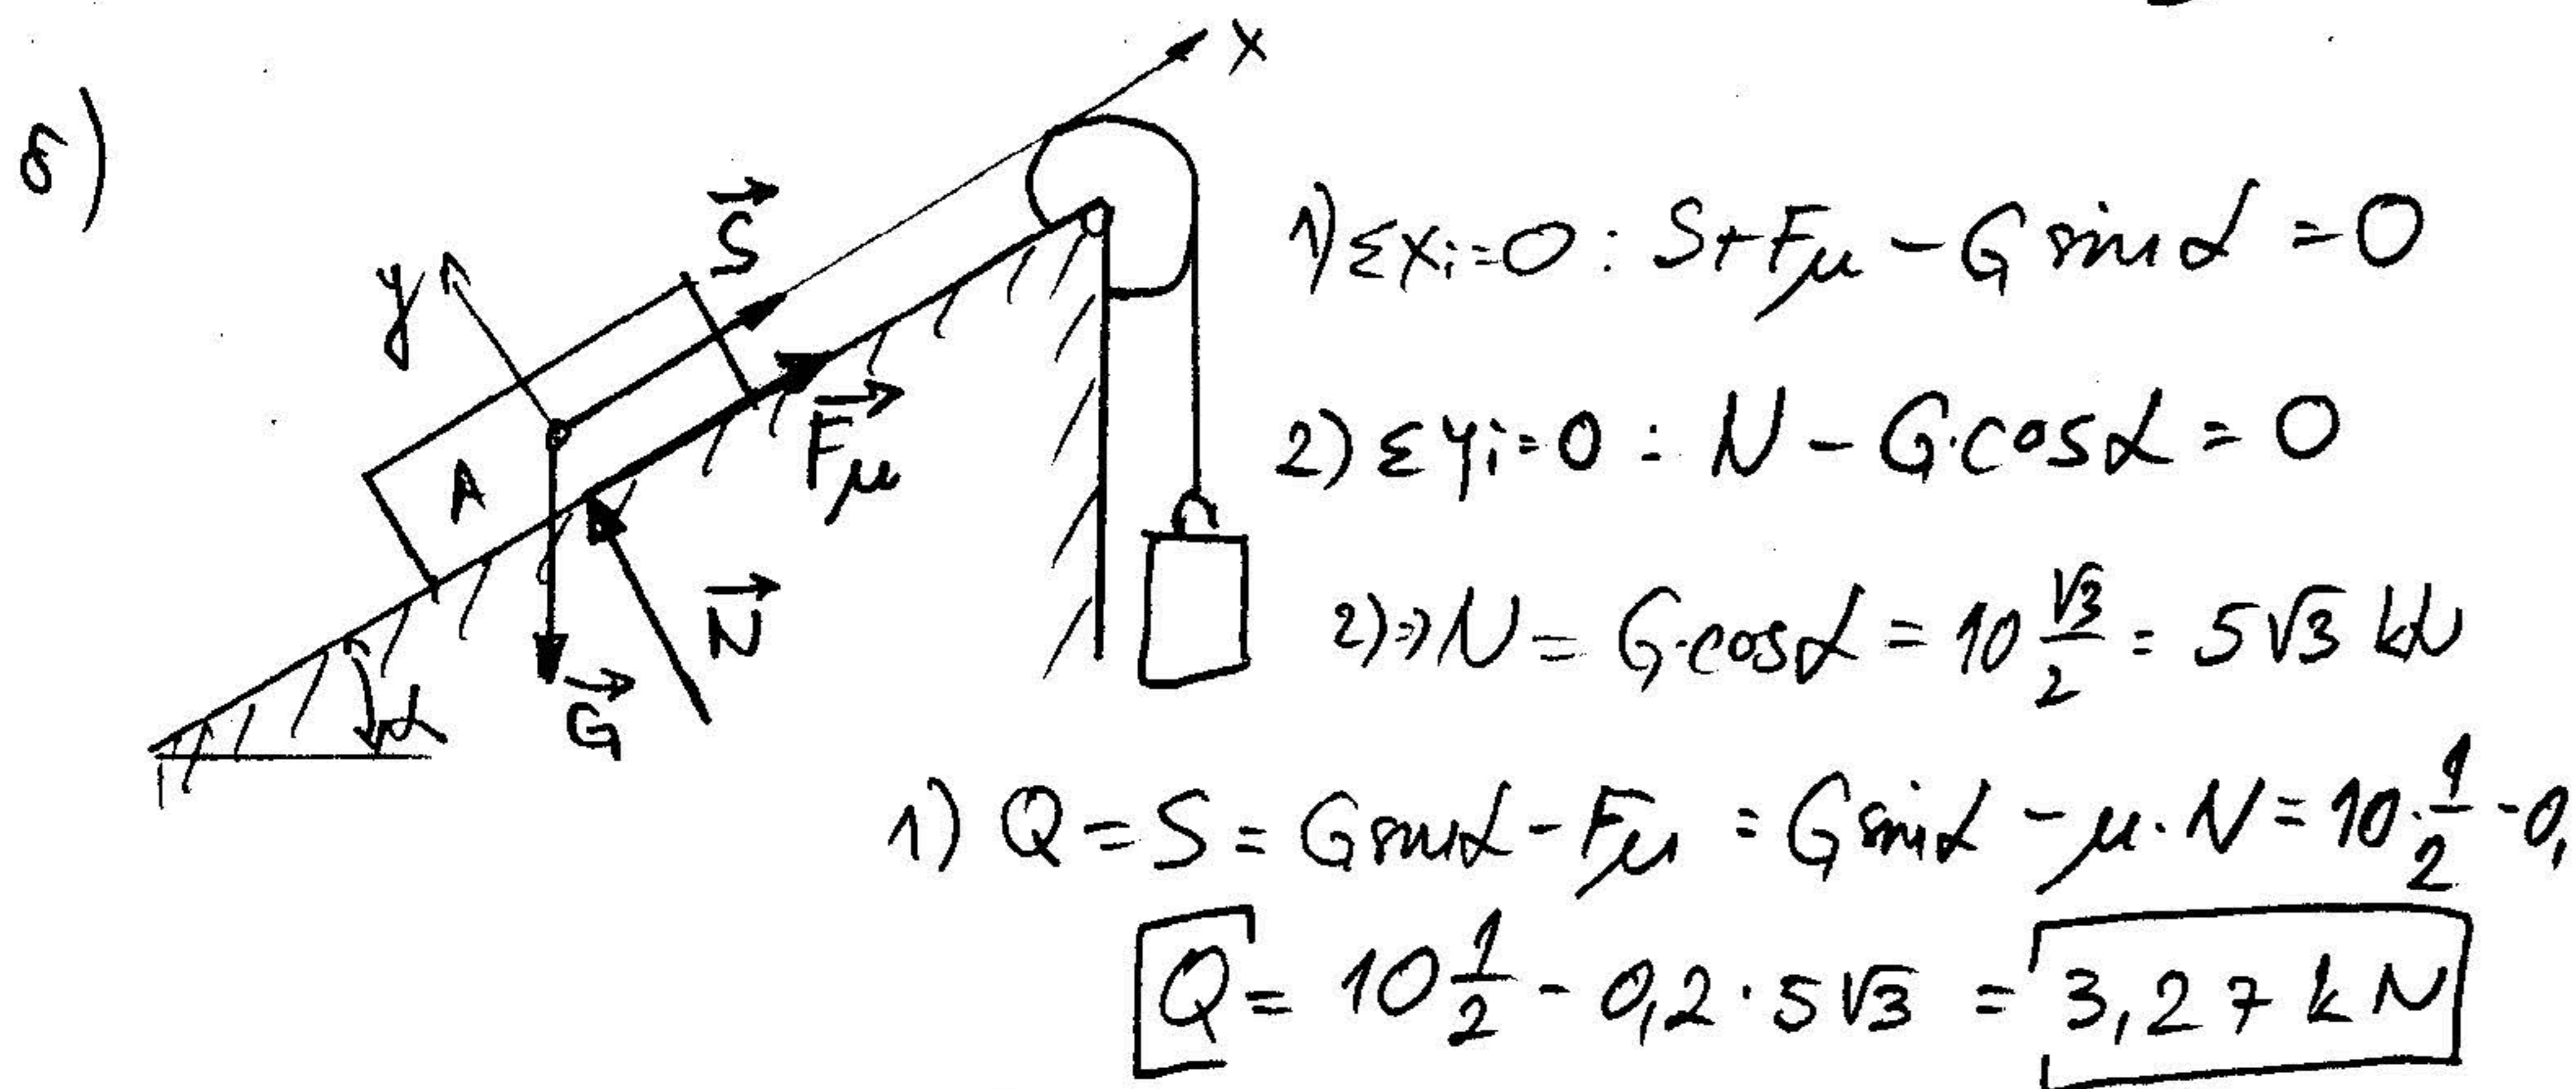 б)
x
y
S⃗
F⃗μ
A
N⃗
G⃗
α
1) Σxi=0 : S+Fμ − G sin α = 0
2) Σyi=0 : N − G·cos α = 0
2)⇒ N = G·cos α = 10 √3/2 = 5√3 kN
1) Q = S = G sin α − Fμ = G sin α − μ·N = 10·1/2 − 0,
Q = 10 1/2 − 0,2·5√3 = 3,27 kN